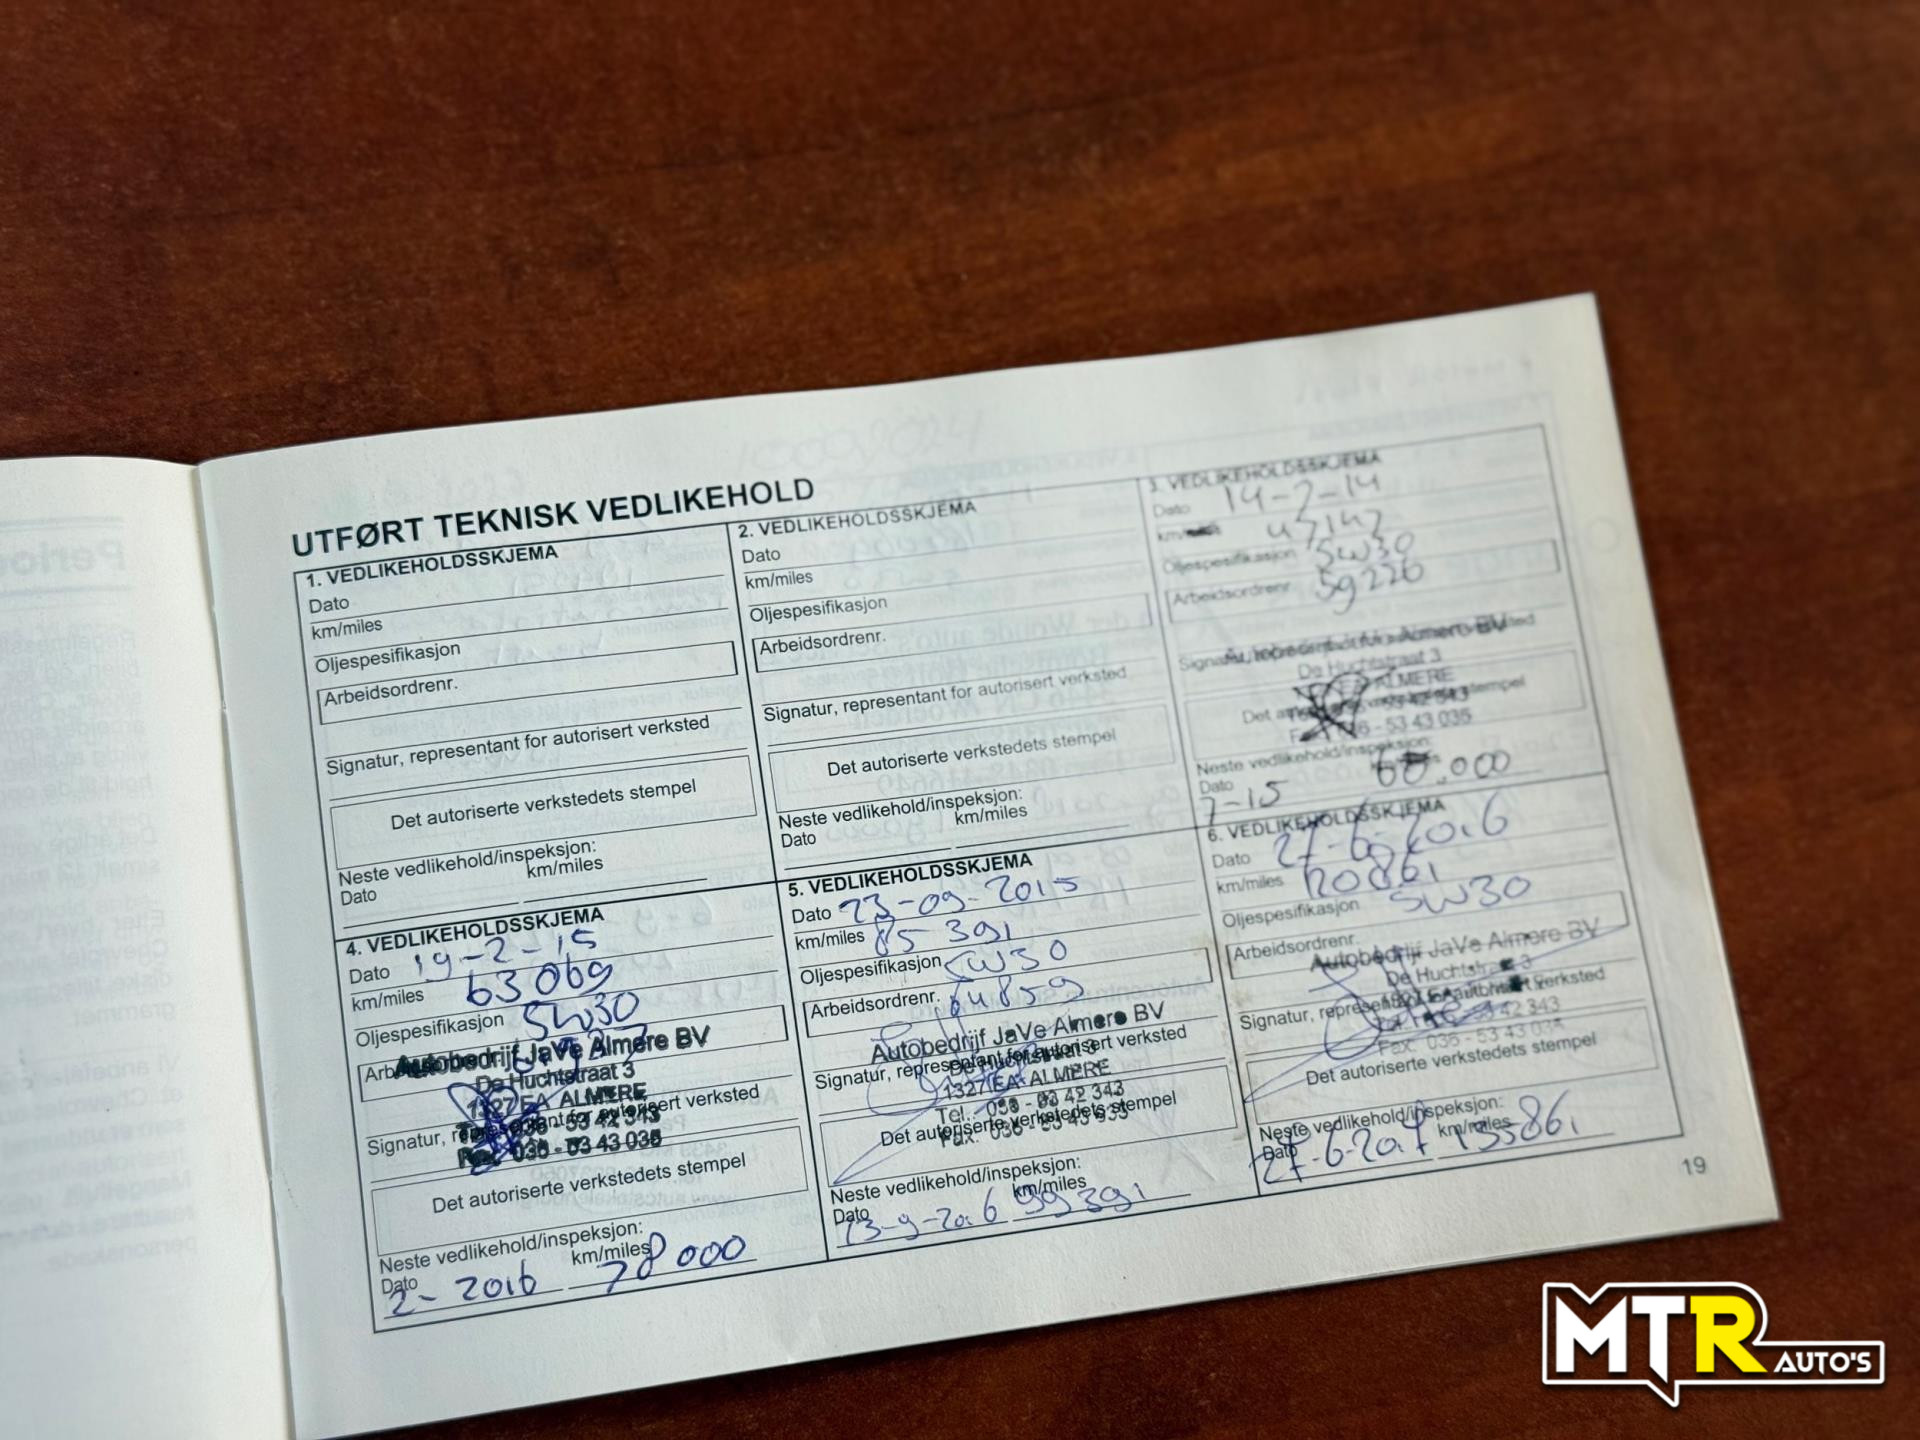 UTFØRT TEKNISK VEDLIKEHOLD
1. VEDLIKEHOLDSSKJEMA
Dato
km/miles
Oljespesifikasjon
Arbeidsordrenr.
Signatur, representant for autorisert verksted
Det autoriserte verkstedets stempel
Neste vedlikehold/inspeksjon:
Dato km/miles
2. VEDLIKEHOLDSSKJEMA
Dato
km/miles
Oljespesifikasjon
Arbeidsordrenr.
Signatur, representant for autorisert verksted
Det autoriserte verkstedets stempel
Neste vedlikehold/inspeksjon:
Dato km/miles
3. VEDLIKEHOLDSSKJEMA
Dato 14-2-14
47147
Oljespesifikasjon 5W30
Arbeidsordrenr. 59226
Almere BV
De Huchtstraat 3
ALMERE
53 43 035
Neste vedlikehold/inspeksjon:
Dato
60.000
4. VEDLIKEHOLDSSKJEMA
Dato 19-2-15
km/miles 63069
Oljespesifikasjon 5W30
Autobedrijf JaVe Almere BV
De Huchtstraat 3
1327 EA ALMERE
036 - 53 42 343
Fax: 036 - 53 43 035
Det autoriserte verkstedets stempel
Neste vedlikehold/inspeksjon:
Dato km/miles
2-2016 78000
5. VEDLIKEHOLDSSKJEMA
Dato 23-09-2015
km/miles 85391
Oljespesifikasjon 5W30
Arbeidsordrenr. 64859
Autobedrijf JaVe Almere BV
Signatur, representant for autorisert verksted
De Huchtstraat 3
1327 EA ALMERE
Tel.: 036 - 53 42 343
Det autoriserte verkstedets stempel
Fax: 036 - 53 43 035
Neste vedlikehold/inspeksjon:
Dato km/miles
99391
6. VEDLIKEHOLDSSKJEMA
Dato 27-6-2016
km/miles 120861
Oljespesifikasjon 5W30
Arbeidsordrenr.
Autobedrijf JaVe Almere BV
De Huchtstraat 3
Fax: 036 - 53 43 035
Det autoriserte verkstedets stempel
Neste vedlikehold/inspeksjon:
Dato km/miles
27-6-2017 135861
19
MTR AUTO'S